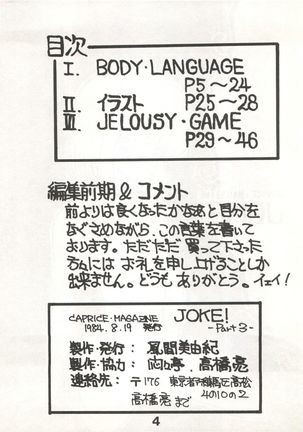 目次
I. BODY・LANGUAGE
P5〜24
II. イラスト P25〜28
III. JELOUSY・GAME
P29〜46
編集前期 & コメント
前よりは良くなったかなあと自分を
なぐさめながら、この言葉を書いて
おります。ただただ買って下さった
方々にはお礼を申し上げることしか
出来ません。どうもありがとう。イェイ!
CAPRICE・MAGAZINE JOKE!
1984.8.19 発行 -Part3-
製作・発行: 風間美由紀
製作・協力: 亭、高橋亮
連絡先: 〒176 東京都練馬区高松
4の10の2
高橋亮まで
4